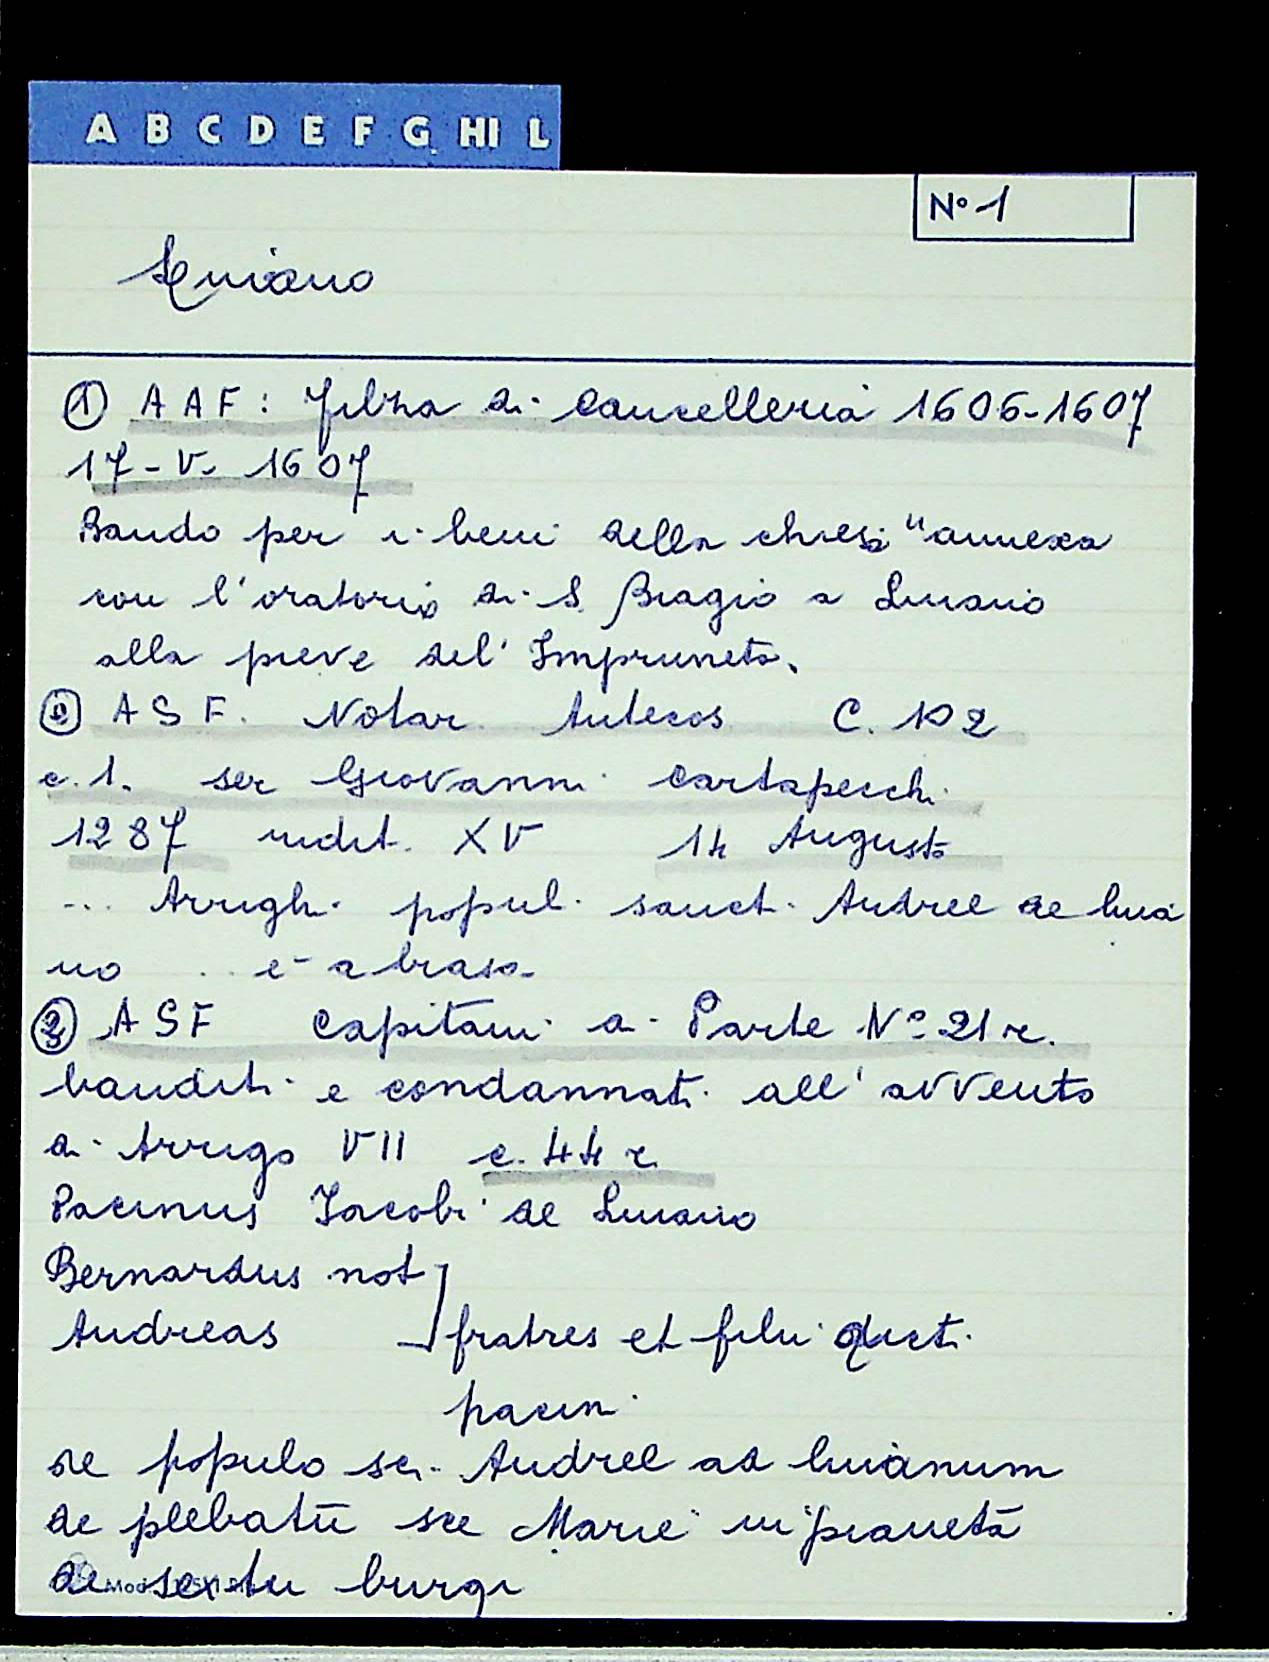 A B C D E F G HI L
N° 1
Luiano
① AAF: Filza di Cancelleria 1606-1607
17-V-1607
Bando per i beni della chiesa "annexa
con l'oratorio di S. Biagio a Luiano
alla pieve del' Impruneta.
② ASF. Notar. Antecos. C. 102
c.1. ser Giovanni Cartapecchi
1287 indit. XV 14 Augusto
... Arrighi popul. sanct. Andree de luia
no .. e abrasa
③ ASF Capitani di Parte N° 21 r.
banditi e condannati all' avvento
di Arrigo VII c. 44 r.
Pacinus Jacobi de Luiano
Bernardus not
Andreas fratres et filii dicti
pacini
de populo sci. Andree ad luianum
de plebatū sce Marie in pianetā
de sextu burgi